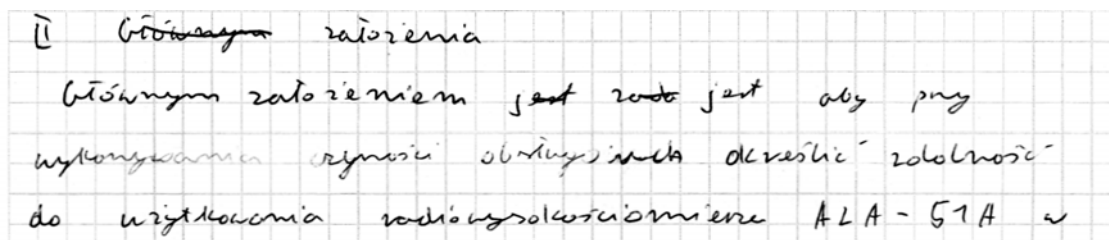 II Głównym założenia
Głównym założeniem jest zada jest aby przy
wykonywania czynności obsługowych określić zdolność
do użytkowania radiowysokościomierza ALA-51A w